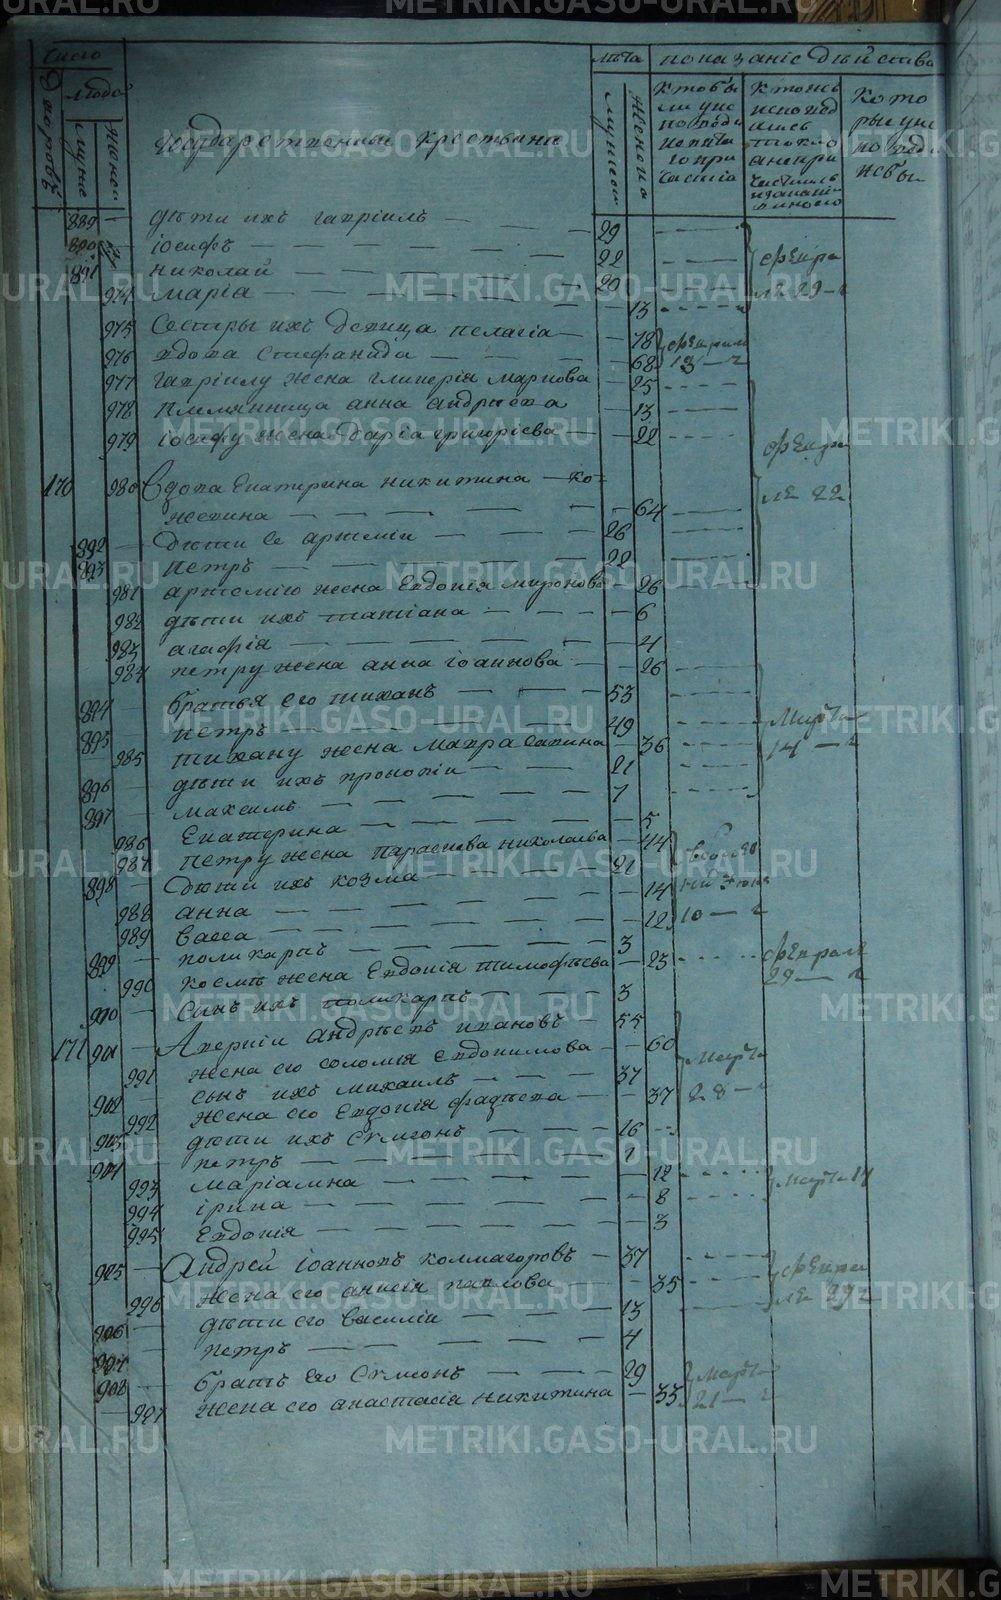 Число
лѣта показаніе дѣйства
дворовъ
людей
мужие
женск
мужеск
женска
Государственныи крестьяне
Кто бы
ли у ис
поведи
и свята
го при
частія
Кто жъ
исповед
ались
токмо
а не при
частились
Кото
рые у ис
поведи
не бы
889 — дѣти ихъ гавріилъ — 29
890 іосифъ — 22
891 николай — 20
974 марія — 13
февра
ля 29 — г
975 Сестры ихъ девица пелагія — 78
976 вдова Стефанида — 68
февраля
13 — г
977 гавріилу жена гликерія маркова — 25
978 племянница анна андрѣева — 13
979 іосифу жена Дарія григоріева — 22
февра
ля 22
170 980 Вдова Екатерина никитина — ко=
жевина — 64
892 — дѣти ее артеміи — 26
893 — петръ — 22
981 артемію жена Евдокія миронова — 26
982 дѣти ихъ татіана — 6
983 агафія — 4
984 петру жена анна іоаннова — 26
894 — братья его тиханъ — 53
895 — петръ — 49
985 тихану жена мавра савина — 36
марта
14 — г
896 — дѣти ихъ прокопіи — 21
897 — максимъ — 7
986 Екатерина — 5
987 петру жена параскева николаева — 44
898 — дѣти ихъ козма — 21
988 анна — 14
989 васса — 12
10 — г
899 — поликарпъ — 3
990 космѣ жена Евдокія тимофѣева — 23
февраля
29 — г
900 — сынъ ихъ поликарпъ — 3
171 901 — Аверкіи андрѣевъ ивановъ — 55
991 жена его соломія евдокимова — 60
902 — сынъ ихъ михаилъ — 37
992 жена его Евдокія фадѣева — 37
марта
28 — г
903 — дѣти ихъ Сѵмеонъ — 16
904 — петръ — 1
993 маріамна — 12
994 ірина — 8
995 Евдокія — 3
905 — Андрей іоанновъ колмагоровъ — 37
996 жена его анисія павлова — 35
февра
ля 29 г
906 — дѣти его василіи — 13
907 — петръ — 4
908 — братъ его Сѵмеонъ — 29
997 жена его анастасія никитина — 33
марта
21 — г
METRIKI.GASO-URAL.RU